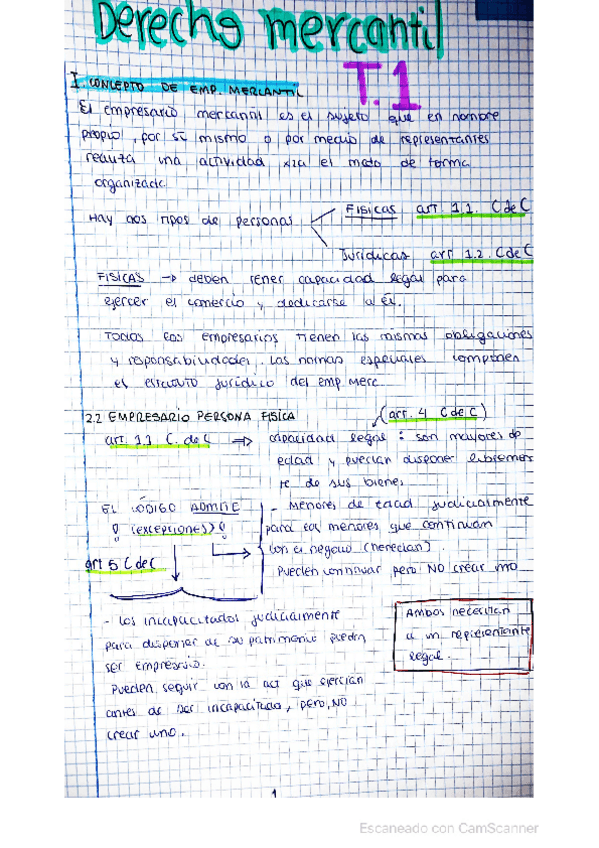 Derecho mercantil
T.1
I. CONCEPTO DE EMP. MERCANTIL
El empresario mercantil es el sujeto que en nombre
propio, por sí mismo o por medio de representantes
realiza una actividad xa el mdto de forma
organizada
Hay dos tipos de personas
FISICAS art 1.1. C de C
Jurídicas art 1.2. C de C
FISICAS → deben tener capacidad legal para
ejercer el comercio y dedicarse a él.
Todos los empresarios tienen las mismas obligaciones
y responsabilidades, las normas especiales componen
el estatuto jurídico del emp merc
2.2 EMPRESARIO PERSONA FISICA
(art. 4 C de C)
art. 1.1 C. de C ⇒ capacidad legal : son mayores de
edad y puedan disponer libremen
te de sus bienes
EL CÓDIGO ADMITE
¡(excepciones)!
art 5 C de C
- Menores de edad judicialmente
para los menores que continúan
con el negocio (heredan).
Pueden continuar pero NO crear uno
- Los incapacitados judicialmente
para disponer de su patrimonio pueden
ser empresario.
Pueden seguir con la act que ejercían
antes de ser incapacitado, pero NO
crear uno.
Ambos necesitan
a un representante
legal.
1
Escaneado con CamScanner